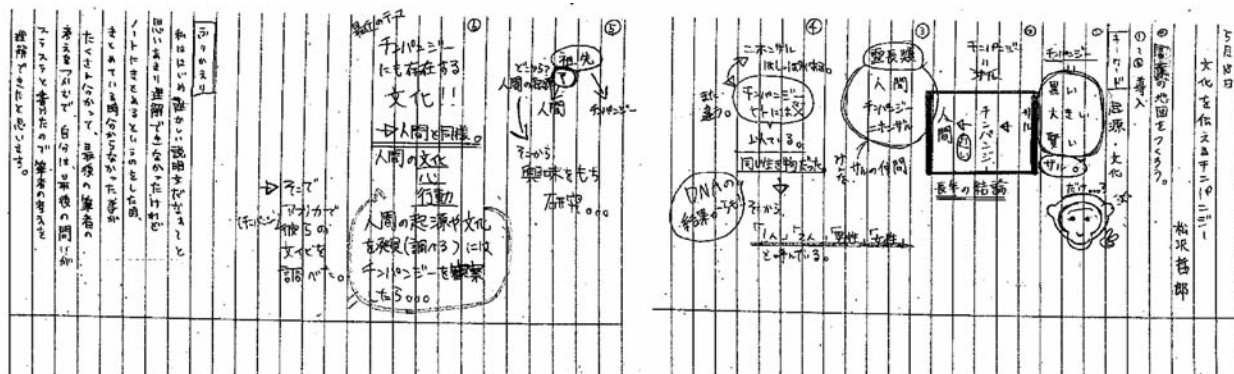 5月18日
文化を伝えるチンパンジー
松沢哲郎
の地図をつくろう。
①～⑥ 導入
キーワード 起源・文化
①
チンパンジー
黒い
大きい
賢い
サル。
だけど…?
②
チンパンジー
=
サル
サル
チンパンジー
人間
長年の結論
③
霊長類
人間
チンパンジー
ニホンザル
みんなサルの仲間
④
ニホンザル
はしっぽがある。
また違う。
チンパンジー
ヒトには
よんでいる。
同じ生き物だった。
DNAの結果
そこから、
「1人」「2人」「男性」「女性」
と呼んでいる。
⑤
祖先
?
人間
チンパンジー
どこから?
人間の起源
そこから
興味をもち
研究。。。
⑥
最近のテーマ
チンパンジー
にも存在する
文化!!
→人間と同様。
人間の文化
心
行動
人間の起源や文化
を発見(調べる)には
チンパンジーを観察
したら。。。
→そこで
アフリカで
(チンパンジー)彼らの
文化を
調べた。
ふりかえり
私ははじめ難かしい説明文だなぁと
思いあまり理解できなかったけれど
ノートにまとめるというのをした時、
まとめている時分からなかった事が
たくさん分かって、最後の筆者の
考えをつないで、自分は、最後の問いが
スラスラと書けたので筆者の考えを
理解できたと思います。